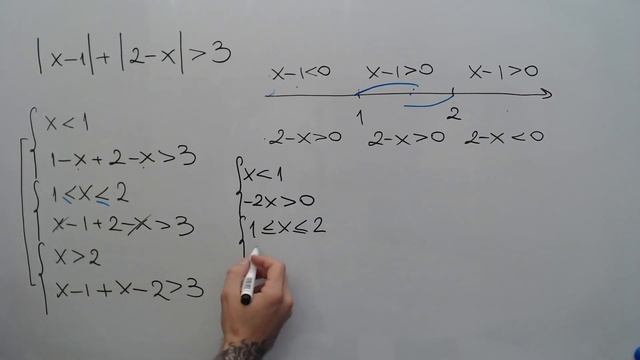 |x-1|+|2-x|>3
x-1<0 x-1>0 x-1>0
1 2
2-x>0 2-x>0 2-x<0
x<1
1-x+2-x>3
1≤x≤2
x-1+2-x>3
x>2
x-1+x-2>3
x<1
-2x>0
1≤x≤2